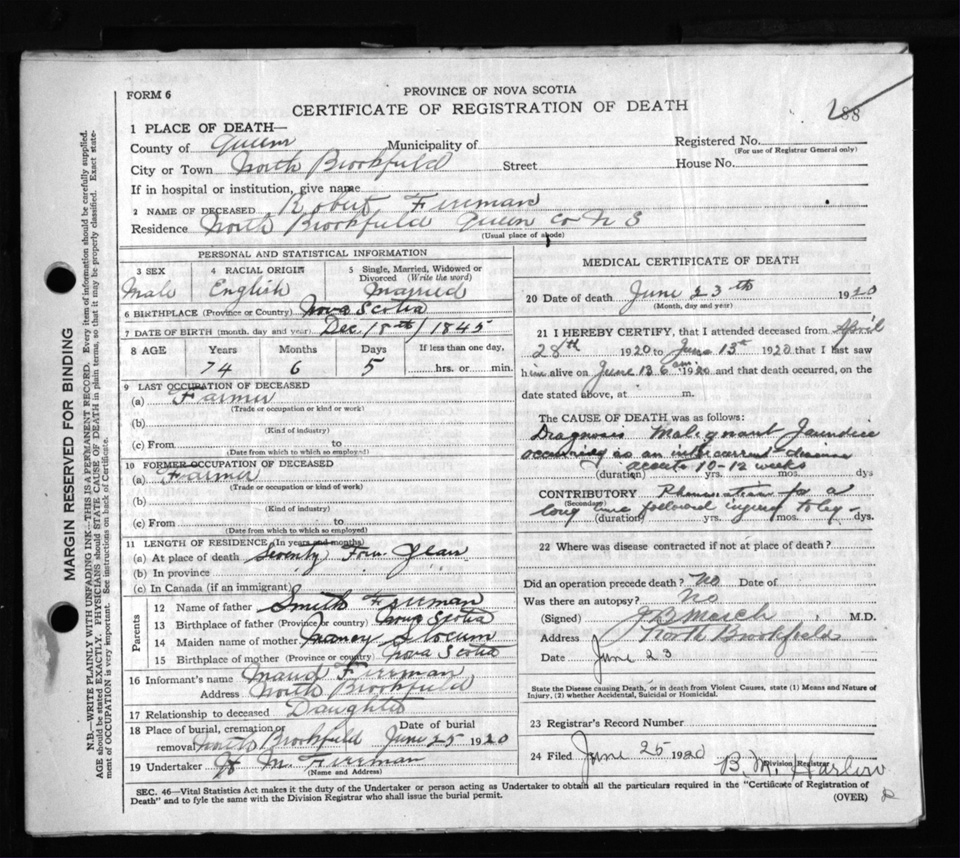 FORM 6
PROVINCE OF NOVA SCOTIA
CERTIFICATE OF REGISTRATION OF DEATH
288
1 PLACE OF DEATH—
County of Queen Municipality of Registered No.
(For use of Registrar General only)
City or Town North Brookfield Street House No.
If in hospital or institution, give name
2 NAME OF DECEASED Robert Freeman
Residence North Brookfield Queen Co N S
(Usual place of abode)
PERSONAL AND STATISTICAL INFORMATION
3 SEX 4 RACIAL ORIGIN 5 Single, Married, Widowed or Divorced (Write the word)
Male English Married
6 BIRTHPLACE (Province or Country) Nova Scotia
7 DATE OF BIRTH (month, day and year) Dec. 18th / 1845
8 AGE Years Months Days If less than one day,
74 6 5 hrs. or min.
9 LAST OCCUPATION OF DECEASED
(a) Farmer
(Trade or occupation or kind or work)
(b)
(Kind of industry)
(c) From to
(Date from which to which so employed)
10 FORMER OCCUPATION OF DECEASED
(a) Farmer
(Trade or occupation or kind of work)
(b)
(Kind of industry)
(c) From to
(Date from which to which so employed)
11 LENGTH OF RESIDENCE (In years and months)
(a) At place of death Seventy Four Years
(b) In province
(c) In Canada (if an immigrant)
Parents
12 Name of father Smith Freeman
13 Birthplace of father (Province or country) Nova Scotia
14 Maiden name of mother Nancy Slocum
15 Birthplace of mother (Province or country) Nova Scotia
16 Informant's name Maud Freeman
Address North Brookfield
17 Relationship to deceased Daughter
18 Place of burial, cremation or removal North Brookfield Date of burial June 25 1920
19 Undertaker M. Freeman
(Name and Address)
MEDICAL CERTIFICATE OF DEATH
20 Date of death June 23th 1920
(Month, day and year)
21 I HEREBY CERTIFY, that I attended deceased from April
28th 1920 to June 13th 1920 that I last saw
him alive on June 13 1920 and that death occurred, on the
date stated above, at m.
The CAUSE OF DEATH was as follows:
Diagnosis Malignant Jaundice
occurring as an intercurrent disease
10-12 weeks
(duration) yrs. mos. dys
CONTRIBUTORY for a
(Secondary)
long time followed injury to leg -
(duration) yrs. mos. dys.
22 Where was disease contracted if not at place of death?
Did an operation precede death? No Date of
Was there an autopsy? No
(Signed) M.D.
Address North Brookfield
Date June 23
State the Disease causing Death, or in death from Violent Causes, state (1) Means and Nature of
Injury, (2) whether Accidental, Suicidal or Homicidal.
23 Registrar's Record Number
24 Filed June 25 1920 B. M. Harlow
Division Registrar
SEC. 46—Vital Statistics Act makes it the duty of the Undertaker or person acting as Undertaker to obtain all the particulars required in the "Certificate of Registration of
Death" and to fyle the same with the Division Registrar who shall issue the burial permit. (OVER)
MARGIN RESERVED FOR BINDING
N.B.—WRITE PLAINLY WITH UNFADING INK—THIS IS A PERMANENT RECORD. Every item of information should be carefully supplied.
AGE should be stated EXACTLY. PHYSICIANS should STATE CAUSE OF DEATH in plain terms, so that it may be properly classified. Exact state-
ment of OCCUPATION is very important. See instructions on back of Certificate.